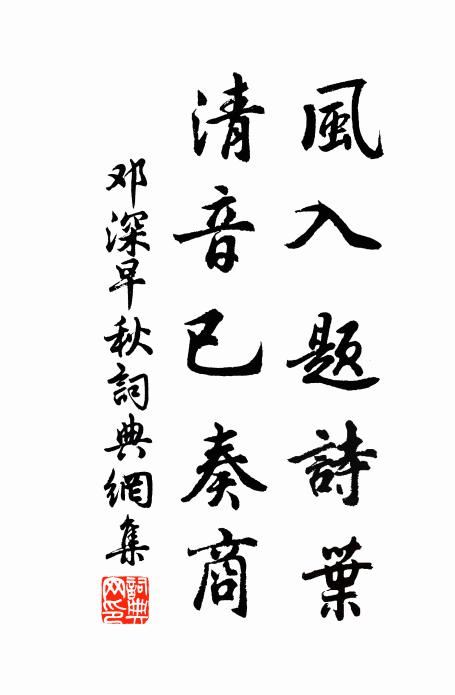 風入题詩葉
清音已奏商
邓深早秋詞典網集
詞典網印